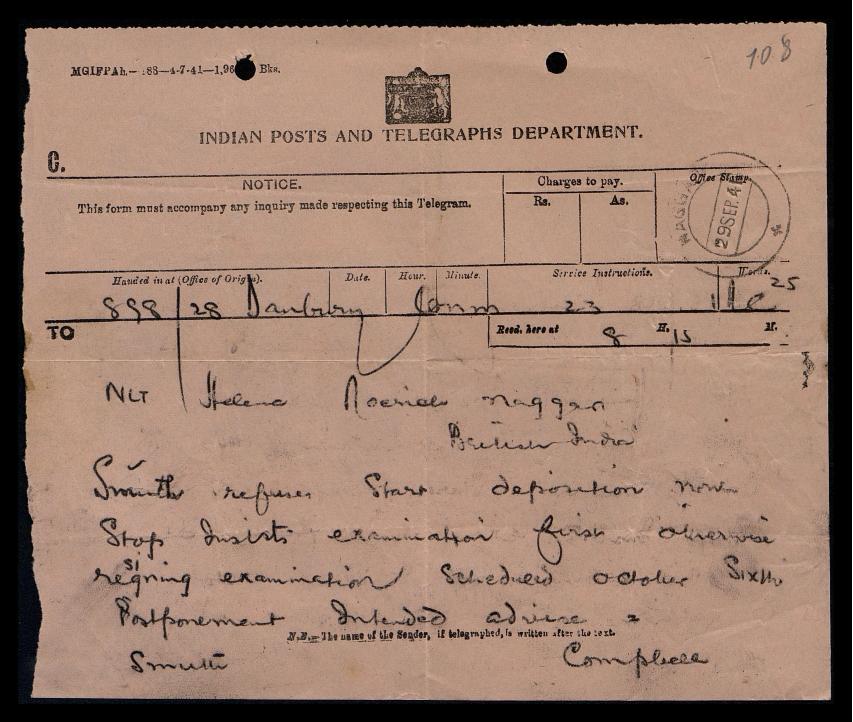 108
MGIFPAh.— 88—4-7-41—1,96 Bks.
INDIAN POSTS AND TELEGRAPHS DEPARTMENT.
C.
NOTICE.
This form must accompany any inquiry made respecting this Telegram.
Charges to pay.
Rs. As.
Office Stamp.
NAGGAR
29 SEP. 4
Handed in at (Office of Origin). Date. Hour. Minute. Service Instructions. Words.
898 28 Danbury Conn 23 25
TO
Recd. here at 8 H. 15 M.
NLT Helena Roerich Naggar
British India
Smith refuses Start deposition now
Stop Insists examination first otherwise
resigning examination Scheduled October Sixth
Postponement Intended advise =
N.B.—The name of the Sender, if telegraphed, is written after the text.
Smith Campbell